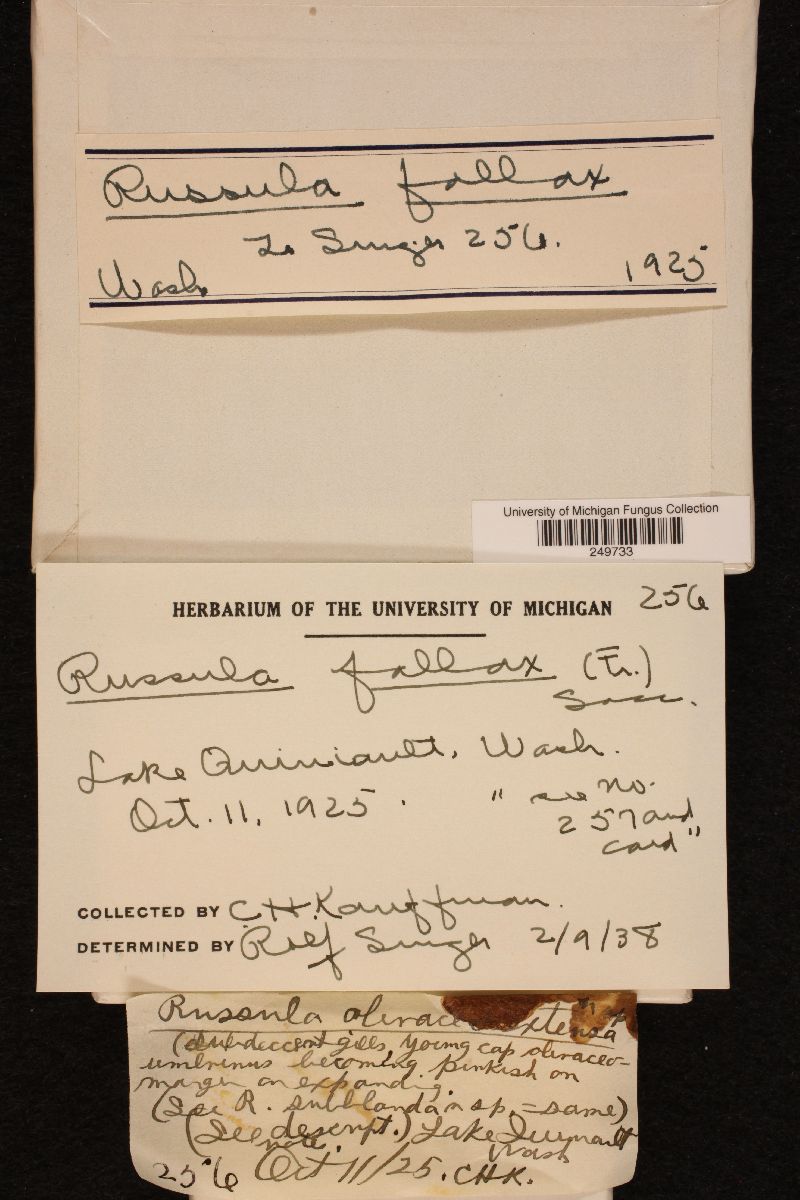 Russula fallax
Wash.
Singer 256.
1925
University of Michigan Fungus Collection
249733
HERBARIUM OF THE UNIVERSITY OF MICHIGAN 256
Russula fallax (Fr.)
Sacc.
Lake Quiniault, Wash.
Oct. 11, 1925. " see no.
257 and
card"
COLLECTED BY C.H. Kauffman.
DETERMINED BY Rolf Singer 2/9/38
Russula extensa
gills, young cap olivaceo-
umbrinus becoming pinkish on
margin on expanding.
(See R. subblanda n sp. = same)
(See descript.) Lake Quinault
note. Wash
256 Oct 11/25. CHK.